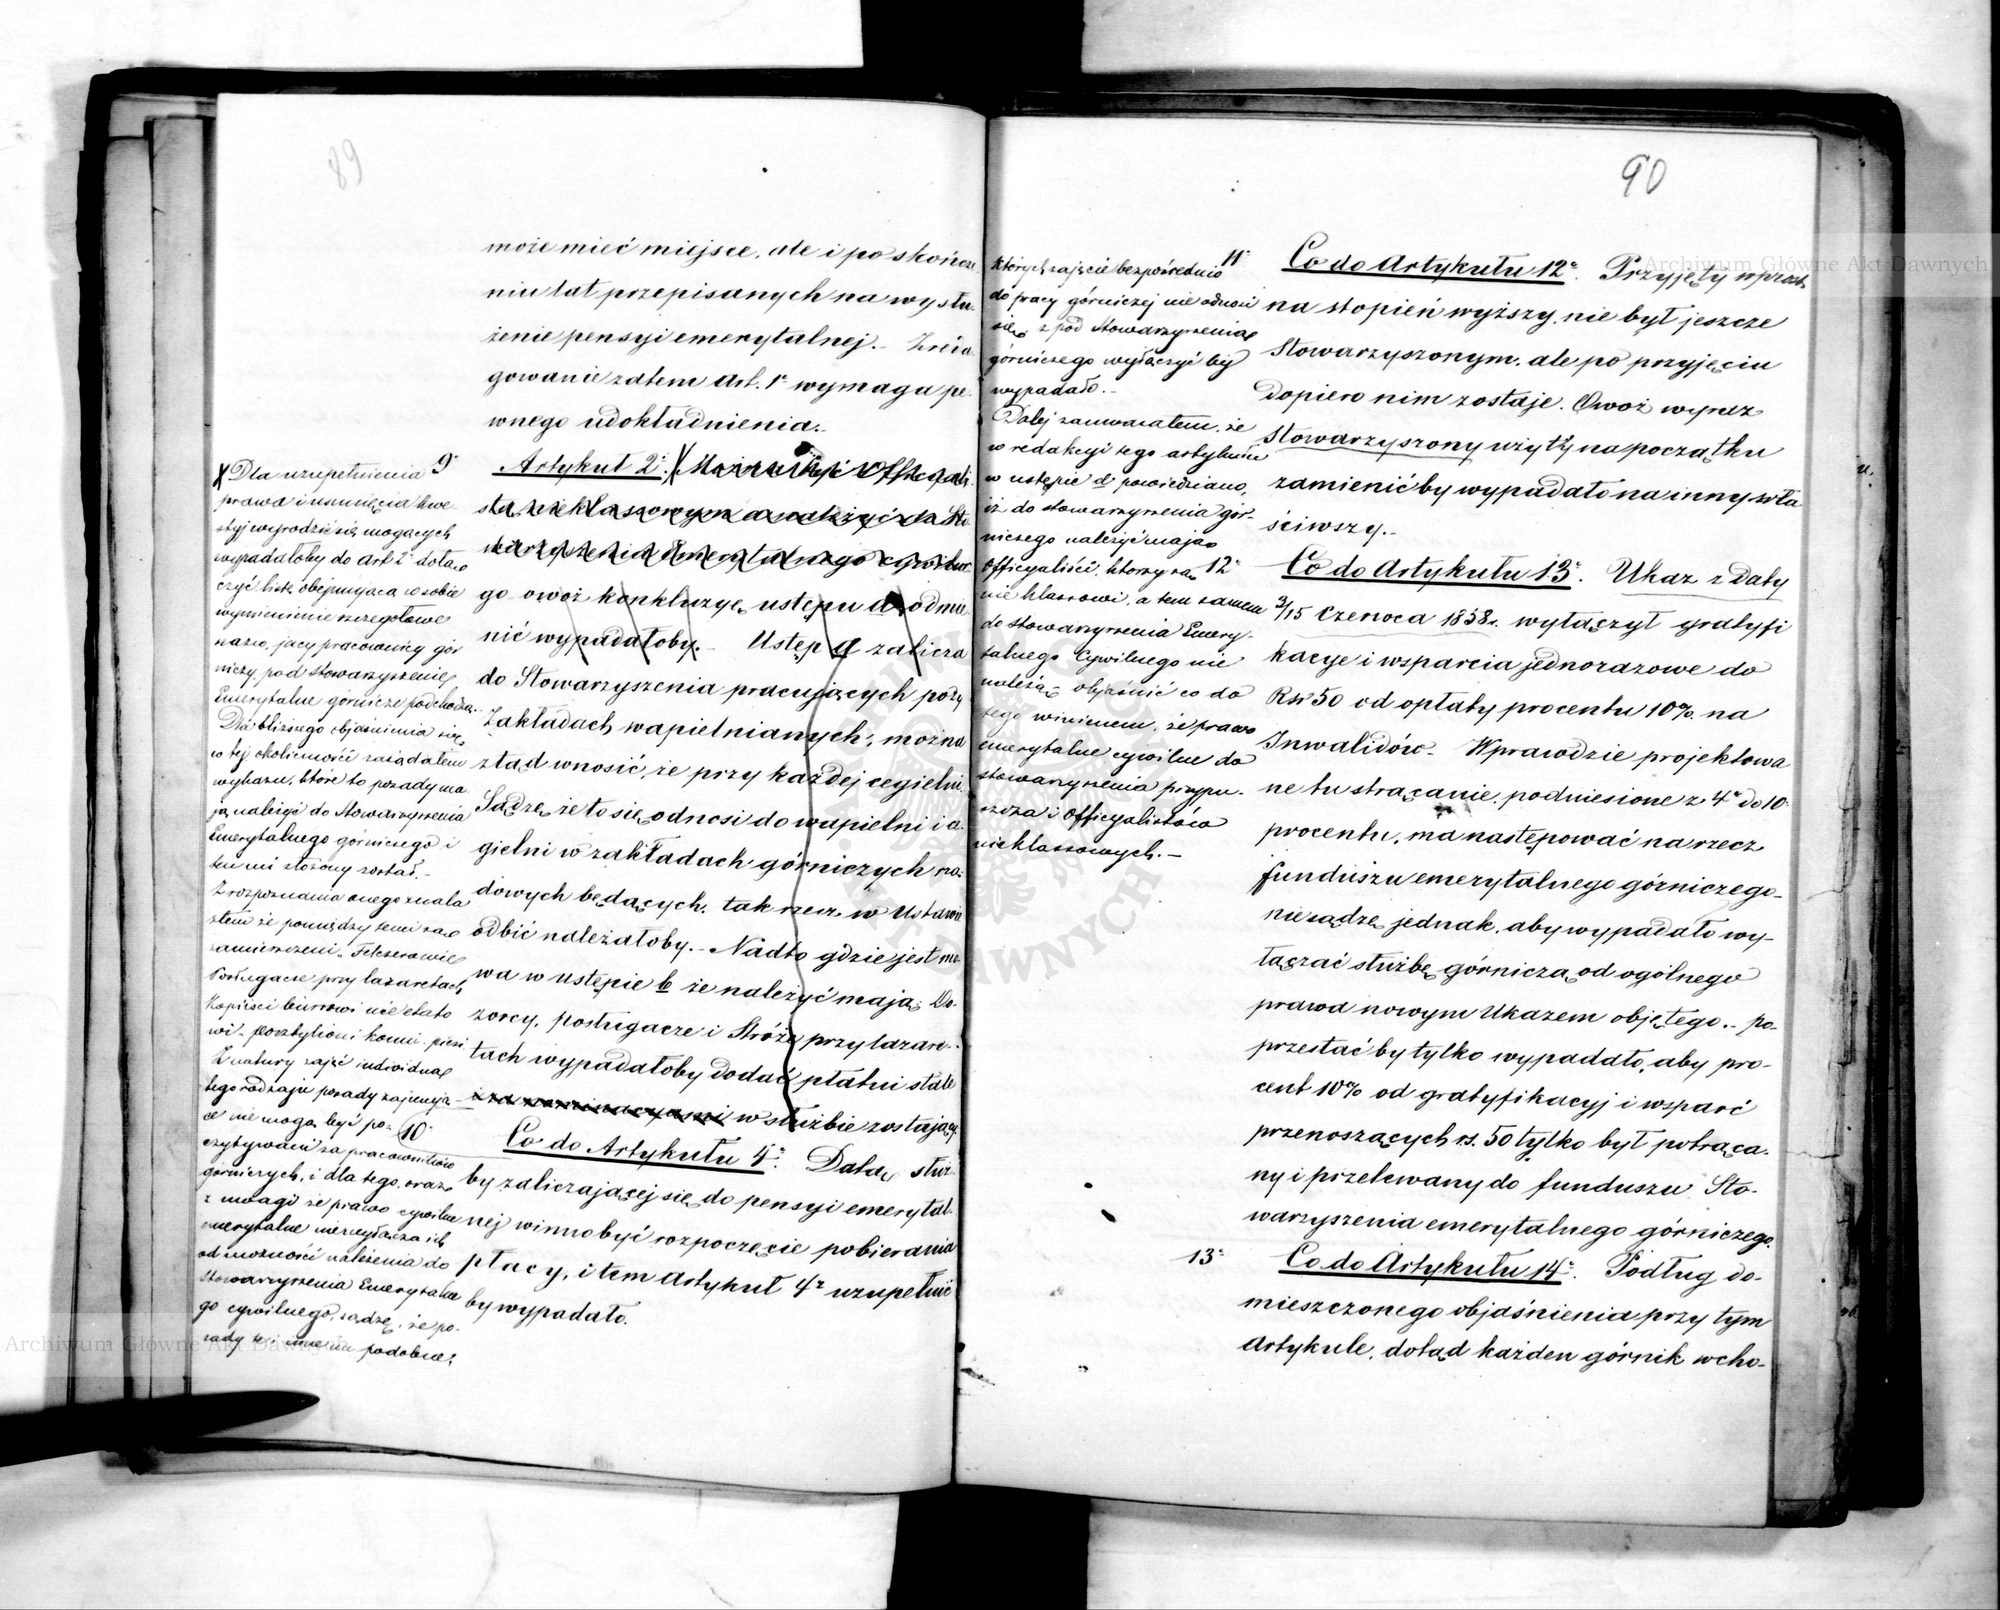 89
może mieć miejsce, ale i po skończe
niu lat przepisanych na wysłu
żenie pensyi emerytalnej. - Zreda
gowanie zatem Art. 1º wymaga pe
wnego udokładnienia. -
9º Artykuł 2º. X Może być Officyali
sta nieklassowym a należyć do Sto
warzyszenia Emerytalnego cywilne
go owoż konkluzyę ustępu d odmie
nić wypadałoby. - Ustęp a zalicza
do Stowarzyszenia pracujących przy
Zakładach wapielnianych, można
ztąd wnosić, że przy każdej cegielni.
Sądzę, że to się odnosi do wapielni i ce
gielni w zakładach górniczych rzą
dowych będących, tak rzecz w Ustawie
odbić należałoby. - Nadto gdzie jest mo
wa w ustępie b że należyć mają: Do
zorcy, posługacze i Stróże przy lazare
tach wypadałoby dodać płatni stale
w służbie zostający.
10º Co do Artykułu 4º. Datą służ
by zaliczającej się do pensyi emerytal
nej winno być rozpoczęcie pobierania
płacy, i tem Artykuł 4º uzupełnić
by wypadało.
X Dla uzupełnienia
prawa i usunięcia kwe
styj wyrodzić się mogących
wypadałoby do Art 2º dołą
czyć listę obejmującą w sobie
wymienienie szczegółowe
nazw, jacy pracownicy gór
niczy pod Stowarzyszenie
Emerytalne górnicze podchodzą.
Dla bliższego objaśnienia się
w tej okoliczności zażądałem
wykazu, które to posady ma
ją należyć do Stowarzyszenia
Emerytalnego górniczego i
ten mi złożony został. -
Z rozpoznania onego znala
złem że pomiędzy temi są
zamieszczeni „Felczerowie
Posługacze przy lazaretach
Kopiści biurowi nie etato
wi - pocztylioni konni - piesi
Z natury zajęć individua
tego rodzaju posady zajmują
ce nie mogą być po-
czytywani za pracowników
górniczych, i dla tego, oraz
z uwagi że prawo cywilne
emerytalne nie wyłącza ich
od możności należenia do
Stowarzyszenia Emerytalne
go cywilnego, sądzę, że po-
sady te i inne im podobne,
90
których zajęcie bezpośrednio
do pracy górniczej nie odnosi
się, z pod Stowarzyszenia
górniczego wyłączyć by
wypadało. -
Dalej zauważałem, że
w redakcyi tego artykułu
w ustępie d powiedziano,
iż do stowarzyszenia gór-
niczego należyć mają
Officyaliści, którzy są
nie klassowi, a tem samem
do stowarzyszenia Emery-
talnego Cywilnego nie
należą - objaśnić co do
tego winienem, że prawo
emerytalne cywilne do
stowarzyszenia przypu-
szcza i Officyalistów
nieklassowych. -
11º Co do Artykułu 12º. Przyjęty wprost
na stopień wyższy, nie był jeszcze
Stowarzyszonym, ale po przyjęciu
dopiero nim zostaje. Owoż wyraz
Stowarzyszony użyty na początku
zamienić by wypadało na inny wła
ściwszy. -
12º Co do Artykułu 13º. Ukaz z daty
3/15 Czerwca 1858 r. wyłączył gratyfi
kacye i wsparcia jednorazowe do
Rsr 50 od opłaty procentu 10% na
Inwalidów - Wprawdzie projektowa
ne tu strącanie, podniesione z 4º do 10º
procentu, ma następować na rzecz
funduszu emerytalnego górniczego -
nie sądzę jednak, aby wypadało wy-
łączać służbę górniczą od ogólnego
prawa nowym Ukazem objętego. - po-
przestać by tylko wypadało, aby pro-
cent 10% od gratyfikacyj i wsparć
przenoszących rs. 50 tylko był potrąca-
ny i przelewany do funduszu Sto-
warzyszenia emerytalnego górniczego.
13º Co do Artykułu 14º. Podług do-
mieszczonego objaśnienia przy tym
Artykule, dotąd każden górnik wcho-
Archiwum Główne Akt Dawnych
Archiwum Główne Akt Dawnych